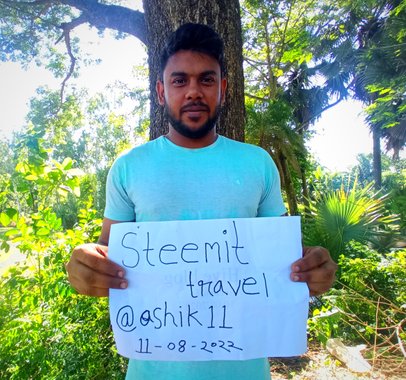 Steemit
travel
@ashik11
11-08-2022